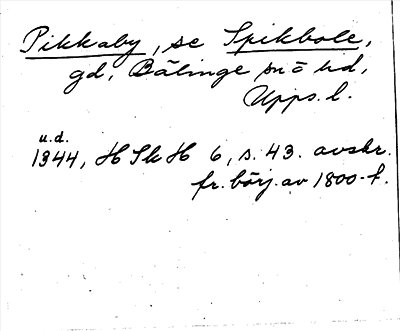 Pikkaby, se Spikbole,
gd, Bälinge sn o hd,
Upps. l.
u.d.
1344, H Sk H 6, s. 43. avskr.
fr. börj. av 1800-t.